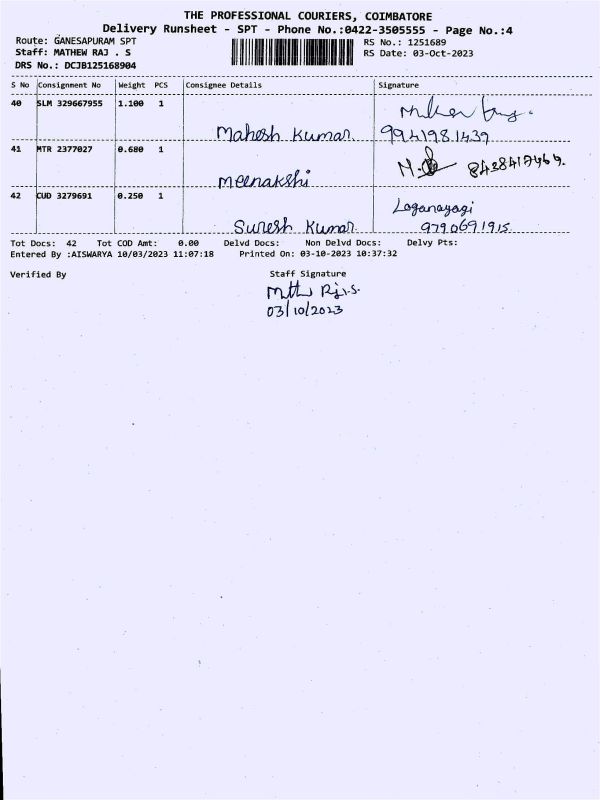 THE PROFESSIONAL COURIERS, COIMBATORE
Delivery Runsheet - SPT - Phone No.:0422-3505555 - Page No.:4
Route: GANESAPURAM SPT RS No.: 1251689
Staff: MATHEW RAJ . S RS Date: 03-Oct-2023
DRS No.: DCJB125168904
S No Consignment No Weight PCS Consignee Details Signature
40 SLM 329667955 1.100 1
Mahesh Kumar 9941981439
41 MTR 2377027 0.680 1
Meenakshi 8428417469.
42 CUD 3279691 0.250 1 Loganayagi
Suresh Kumar 9790691915
Tot Docs: 42 Tot COD Amt: 0.00 Delvd Docs: Non Delvd Docs: Delvy Pts:
Entered By :AISWARYA 10/03/2023 11:07:18 Printed On: 03-10-2023 10:37:32
Verified By Staff Signature
03/10/2023